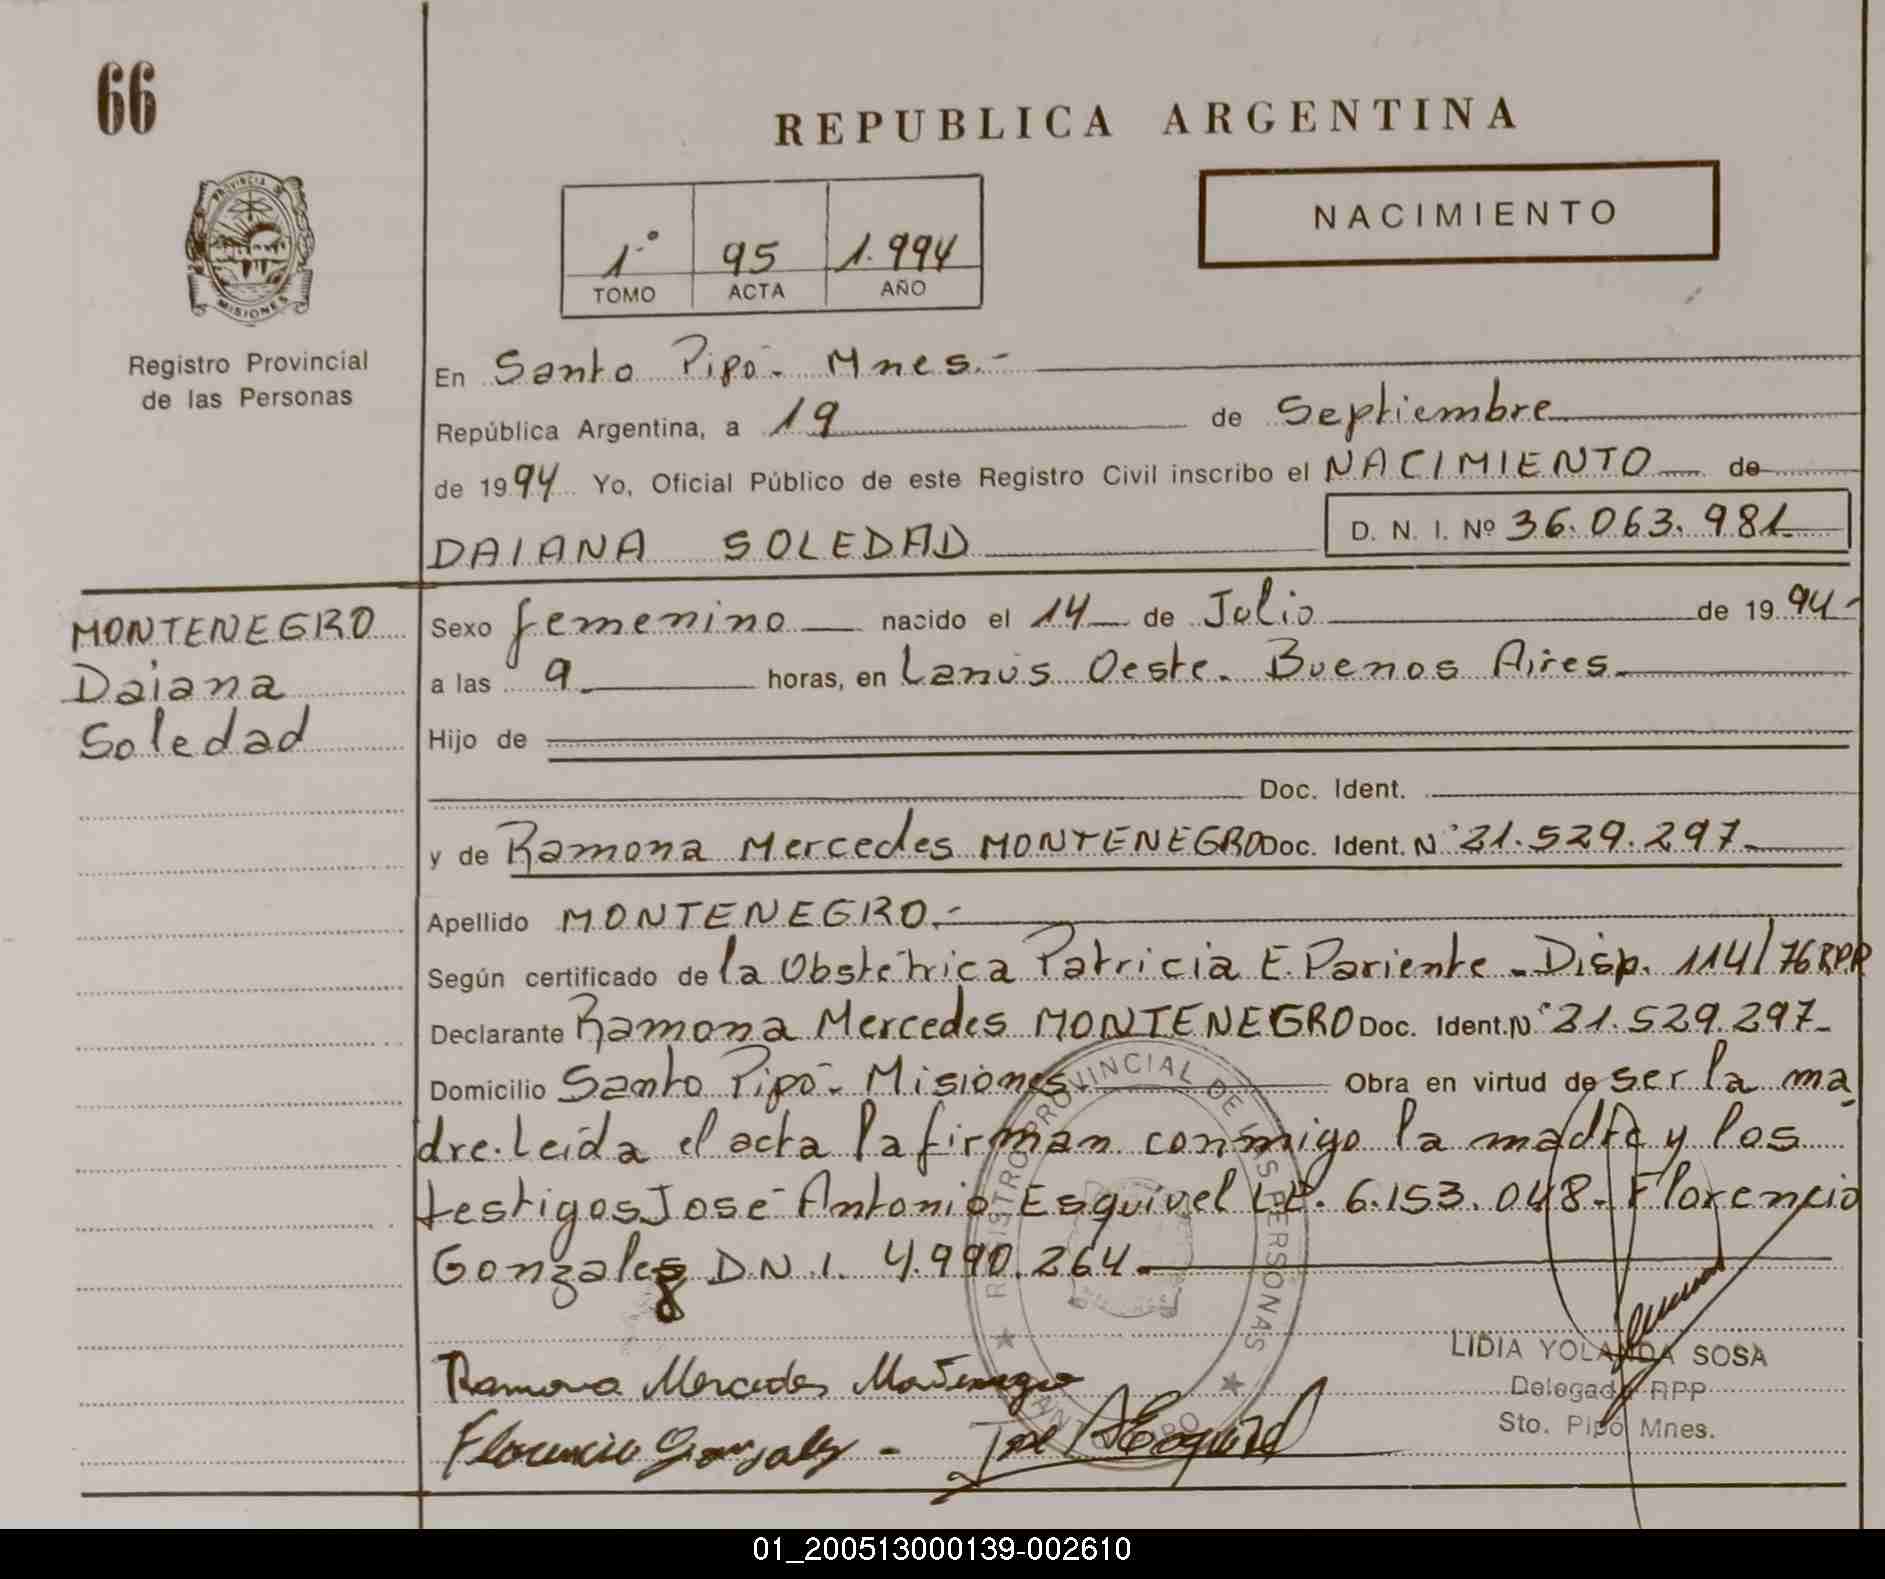 66
REPUBLICA ARGENTINA
NACIMIENTO
1.º 95 1.994
TOMO ACTA AÑO
PROVINCIA DE
MISIONES
Registro Provincial
de las Personas
En Santo Pipó - Mnes.-
República Argentina, a 19 de Septiembre
de 1994 Yo, Oficial Público de este Registro Civil inscribo el NACIMIENTO de
DAIANA SOLEDAD D. N. I. Nº 36.063.981
MONTENEGRO
Daiana
Soledad
Sexo femenino nacido el 14 de Julio de 1994-
a las 9 horas, en Lanús Oeste. Buenos Aires.
Hijo de
Doc. Ident.
y de Ramona Mercedes MONTENEGRO Doc. Ident. Nº 21.529.297.
Apellido MONTENEGRO.-
Según certificado de la Obstétrica Patricia E. Pariente - Disp. 114/76 RPP
Declarante Ramona Mercedes MONTENEGRO Doc. Ident. Nº 21.529.297-
Domicilio Santo Pipó - Misiones Obra en virtud de ser la ma
dre. Leída el acta la firman conmigo la madre y los
testigos José Antonio Esquivel L.E. 6.153.048- Florencio
Gonzalez D.N.I. 4.990.264.
REGISTRO PROVINCIAL DE LAS PERSONAS
SANTO PIPO
LIDIA YOLANDA SOSA
Delegada RPP
Sto. Pipó Mnes.
Ramona Mercedes Montenegro
Florencio Gonzalez - José A Esquivel
01_200513000139-002610